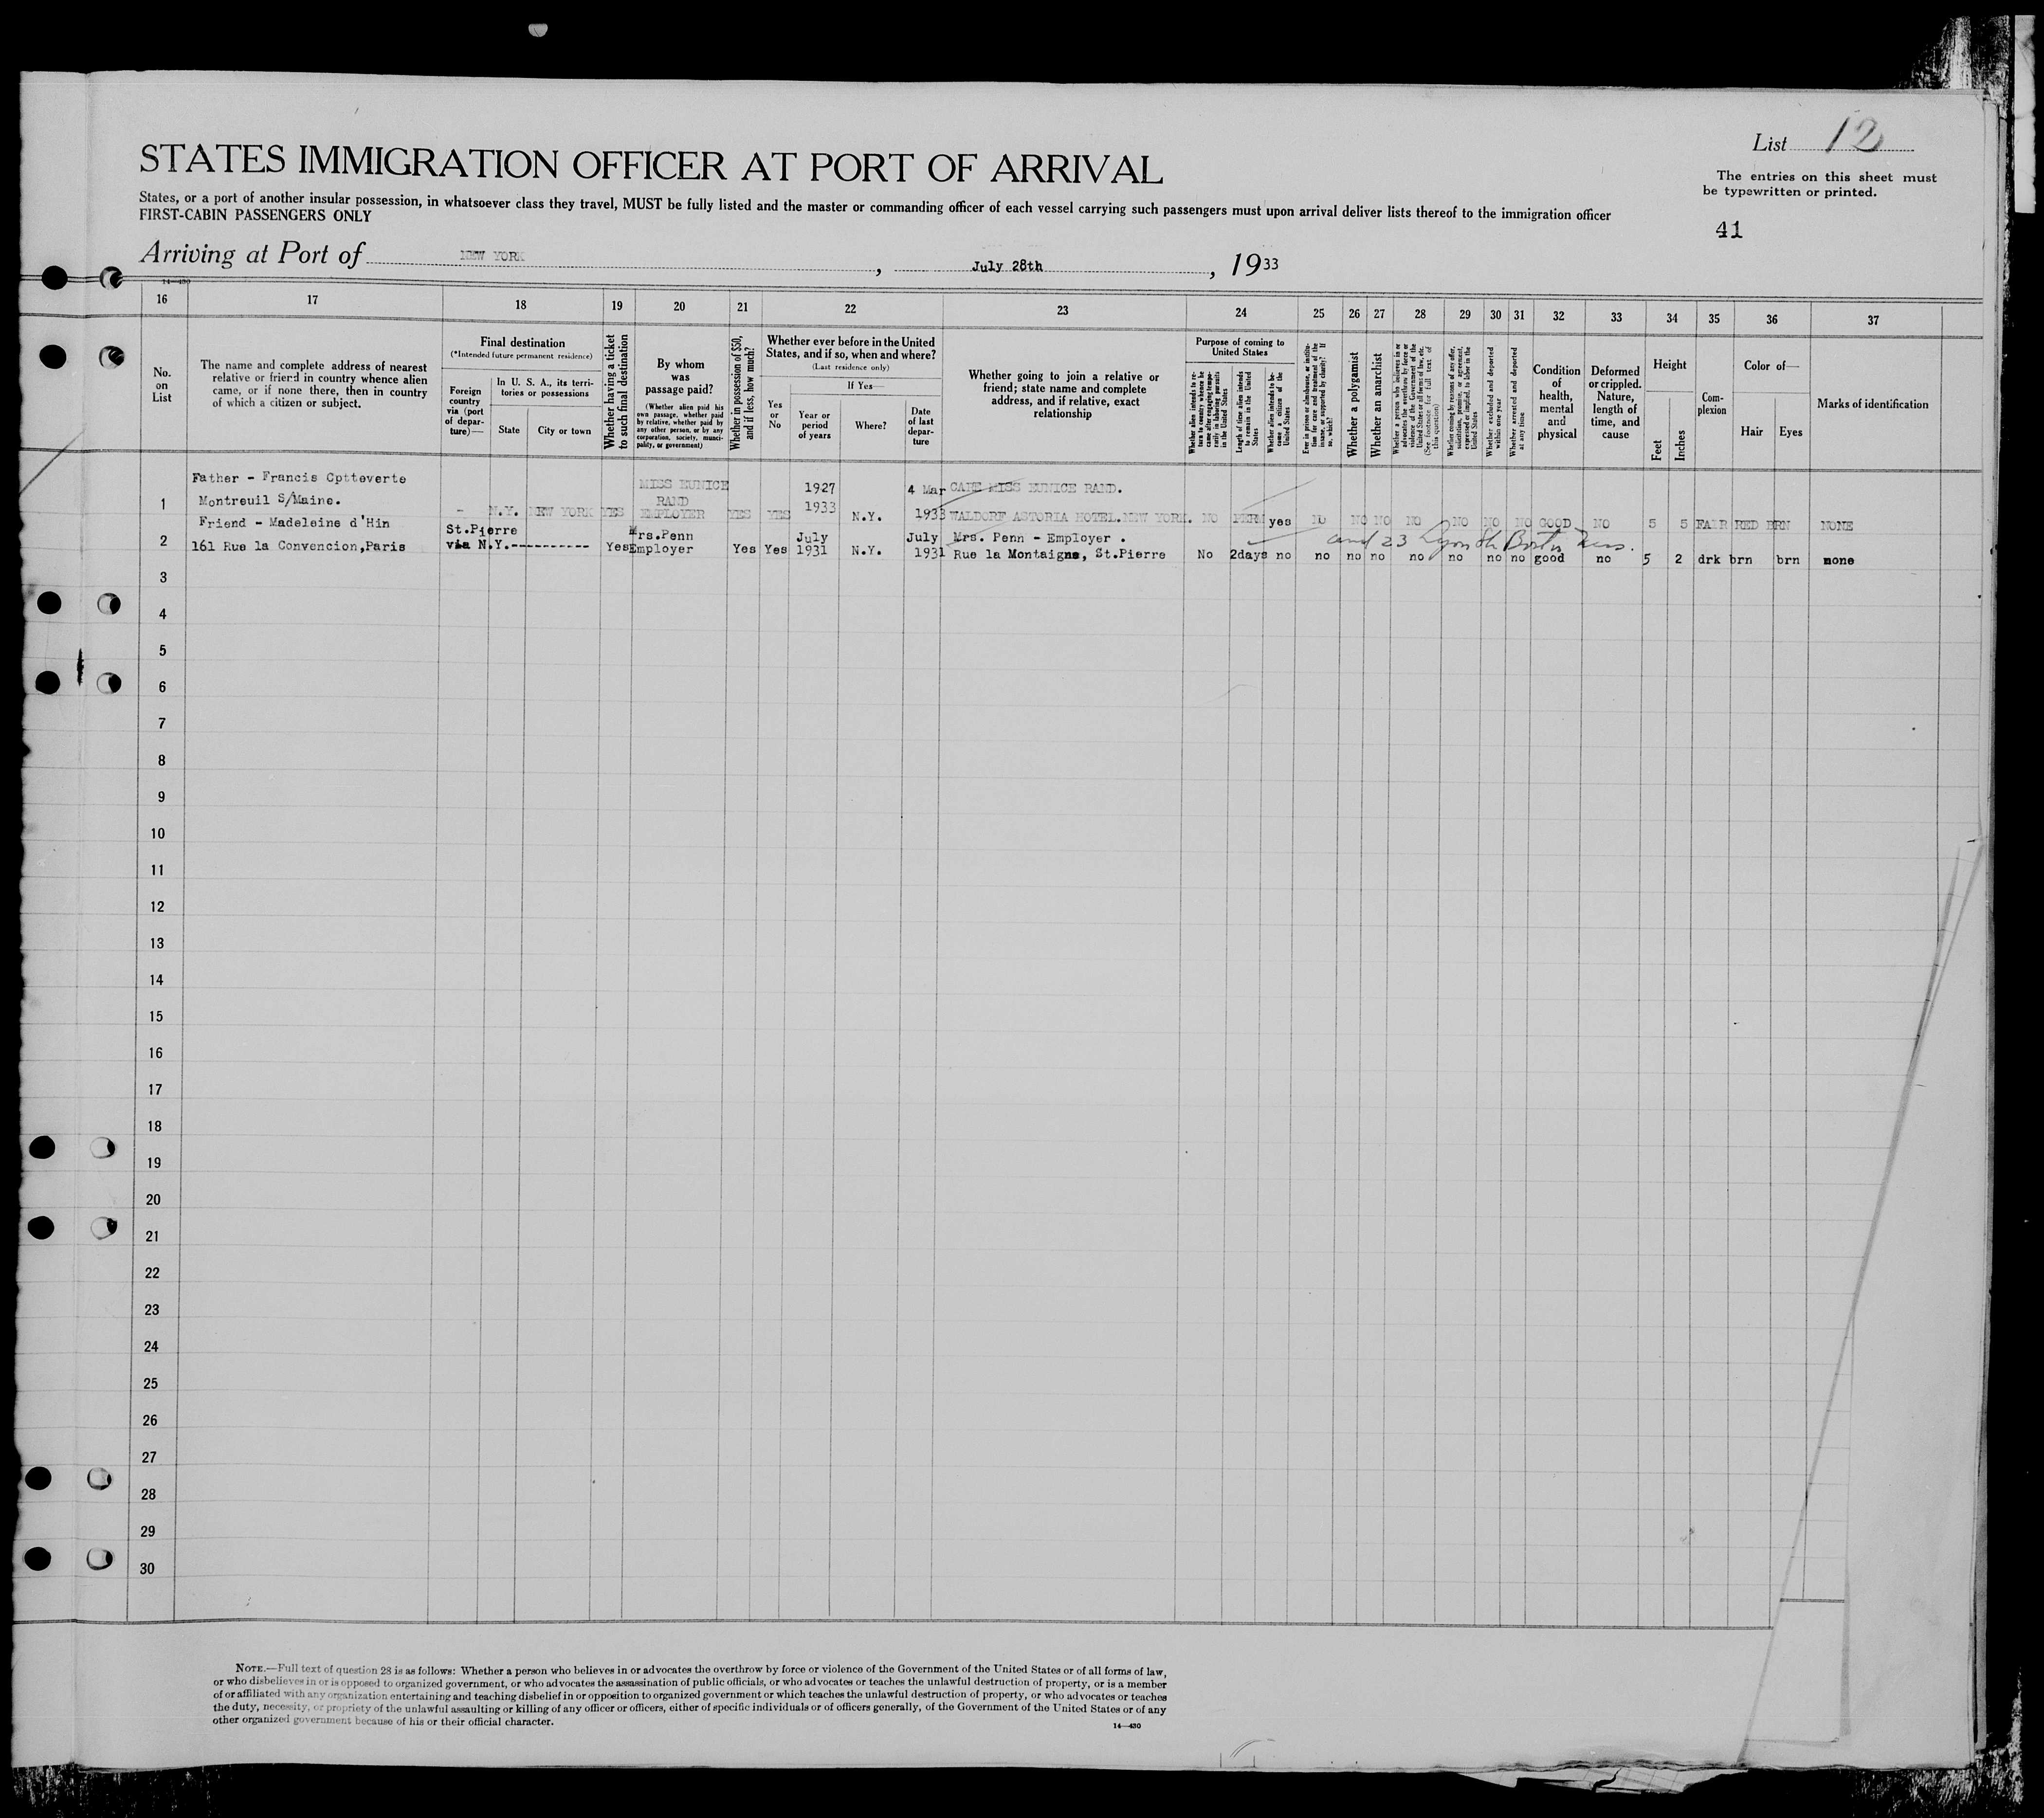 List 12
The entries on this sheet must
be typewritten or printed.
41
STATES IMMIGRATION OFFICER AT PORT OF ARRIVAL
States, or a port of another insular possession, in whatsoever class they travel, MUST be fully listed and the master or commanding officer of each vessel carrying such passengers must upon arrival deliver lists thereof to the immigration officer
FIRST-CABIN PASSENGERS ONLY
Arriving at Port of NEW YORK, July 28th, 1933
14—430
16 17 18 19 20 21 22 23 24 25 26 27 28 29 30 31 32 33 34 35 36 37
No.
on
List
The name and complete address of nearest
relative or friend in country whence alien
came, or if none there, then in country
of which a citizen or subject.
Final destination
(*Intended future permanent residence)
Foreign
country
via (port
of depar-
ture)—
In U. S. A., its terri-
tories or possessions
State
City or town
Whether having a ticket
to such final destination
By whom
was
passage paid?
(Whether alien paid his
own passage, whether paid
by relative, whether paid by
any other person, or by any
corporation, society, munici-
pality, or government)
Whether in possession of $50,
and if less, how much?
Whether ever before in the United
States, and if so, when and where?
(Last residence only)
Yes
or
No
If Yes—
Year or
period
of years
Where?
Date
of last
depar-
ture
Whether going to join a relative or
friend; state name and complete
address, and if relative, exact
relationship
Purpose of coming to
United States
Whether alien intends to re-
turn to country whence he
came after engaging tempo-
rarily in laboring pursuits
in the United States
Length of time alien intends
to remain in the United
States
Whether alien intends to be-
come a citizen of the
United States
Ever in prison or almshouse, or institu-
tion for care and treatment of the
insane, or supported by charity? If
so, which?
Whether a polygamist
Whether an anarchist
Whether a person who believes in or
advocates the overthrow by force or
violence of the Government of the
United States or all forms of law, etc.
(See footnote for full text of
this question)
Whether coming by reasons of any offer,
solicitation, promise, or agreement,
expressed or implied, to labor in the
United States
Whether excluded and deported
within one year
Whether arrested and deported
at any time
Condition
of
health,
mental
and
physical
Deformed
or crippled.
Nature,
length of
time, and
cause
Height
Feet
Inches
Com-
plexion
Color of—
Hair
Eyes
Marks of identification
Father - Francis Cptteverte MISS EUNICE 1927 4 Mar CARE MISS EUNICE RAND.
1 Montreuil S/Maine. RAND 1933
- N.Y. NEW YORK YES EMPLOYER YES YES N.Y. 1933 WALDORF ASTORIA HOTEL.NEW YORK. NO PERM yes NO NO NO NO NO NO NO GOOD NO 5 5 FAIR RED BRN NONE
and 23 Lyon St Boston Mass.
Friend - Madeleine d'Hin St.Pierre Mrs.Penn July July Mrs. Penn - Employer .
2 161 Rue la Convencion,Paris via N.Y.---------- Yes Employer Yes Yes 1931 N.Y. 1931 Rue la Montaigne, St.Pierre No 2days no no no no no no no no good no 5 2 drk brn brn none
3
4
5
6
7
8
9
10
11
12
13
14
15
16
17
18
19
20
21
22
23
24
25
26
27
28
29
30
NOTE.—Full text of question 28 is as follows: Whether a person who believes in or advocates the overthrow by force or violence of the Government of the United States or of all forms of law,
or who disbelieves in or is opposed to organized government, or who advocates the assassination of public officials, or who advocates or teaches the unlawful destruction of property, or is a member
of or affiliated with any organization entertaining and teaching disbelief in or opposition to organized government or which teaches the unlawful destruction of property, or who advocates or teaches
the duty, necessity, or propriety of the unlawful assaulting or killing of any officer or officers, either of specific individuals or of officers generally, of the Government of the United States or of any
other organized government because of his or their official character.
14—430